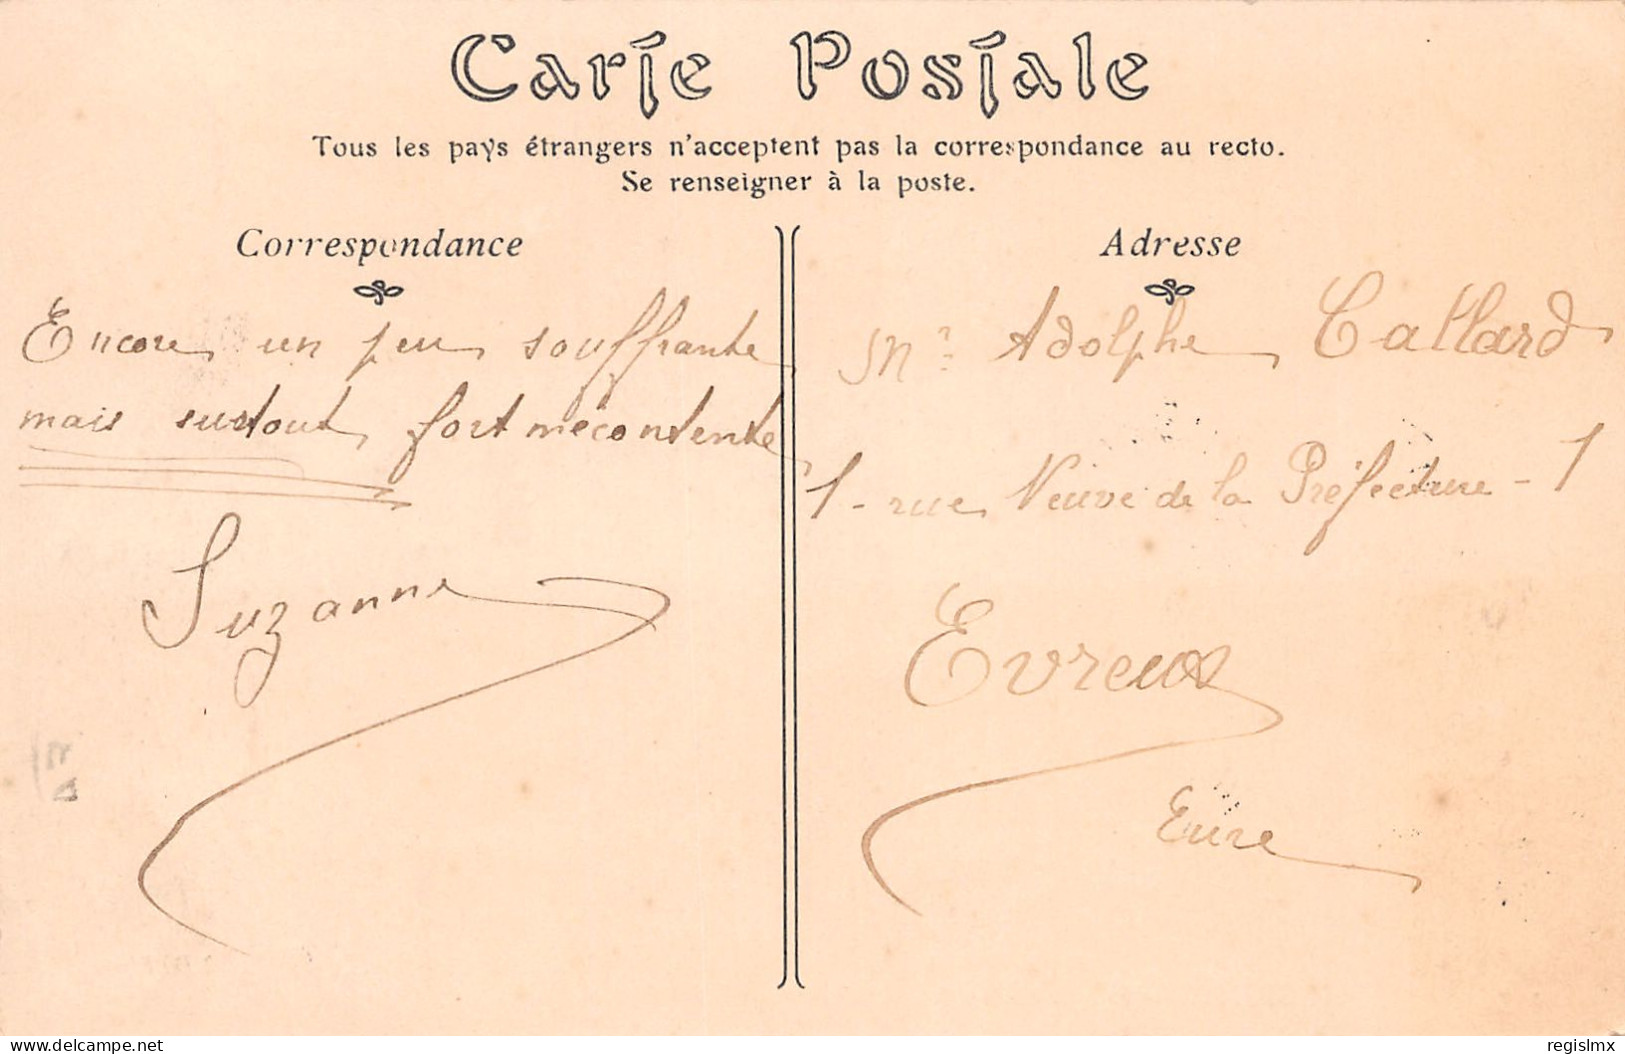 Carte Postale
Tous les pays étrangers n'acceptent pas la correspondance au recto.
Se renseigner à la poste.
Correspondance
Encore un peu souffrante
mais surtout fort mécontente
Suzanne
Adresse
Mr Adolphe Callard
1 - rue Neuve de la Préfecture - 1
Evreux
Eure
delcampe.net
regislmx